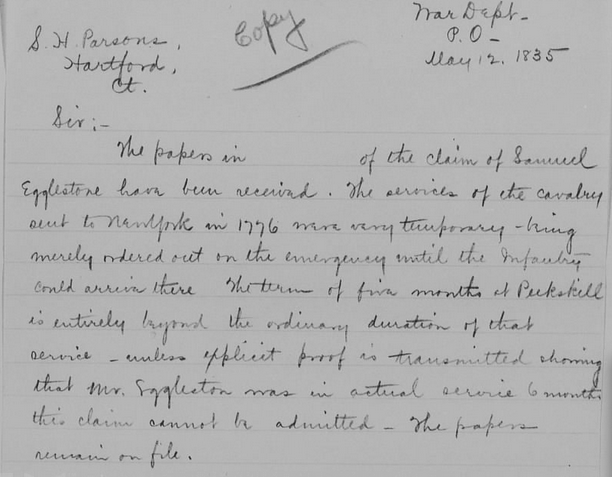 Copy
War Dept-
P.O-
May 12. 1835
S. H. Parsons,
Hartford,
Ct.
Sir;-
The papers in of the claim of Samuel
Egglestone have been received. The services of the cavalry
sent to NewYork in 1776 were very temporary - being
merely ordered out on the emergency until the Infantry
could arrive there The term of five months at Peekskill
is entirely beyond the ordinary duration of that
service - unless explicit proof is transmitted showing
that Mr. Eggleston was in actual service 6 months
this claim cannot be admitted - The papers
remain on file.